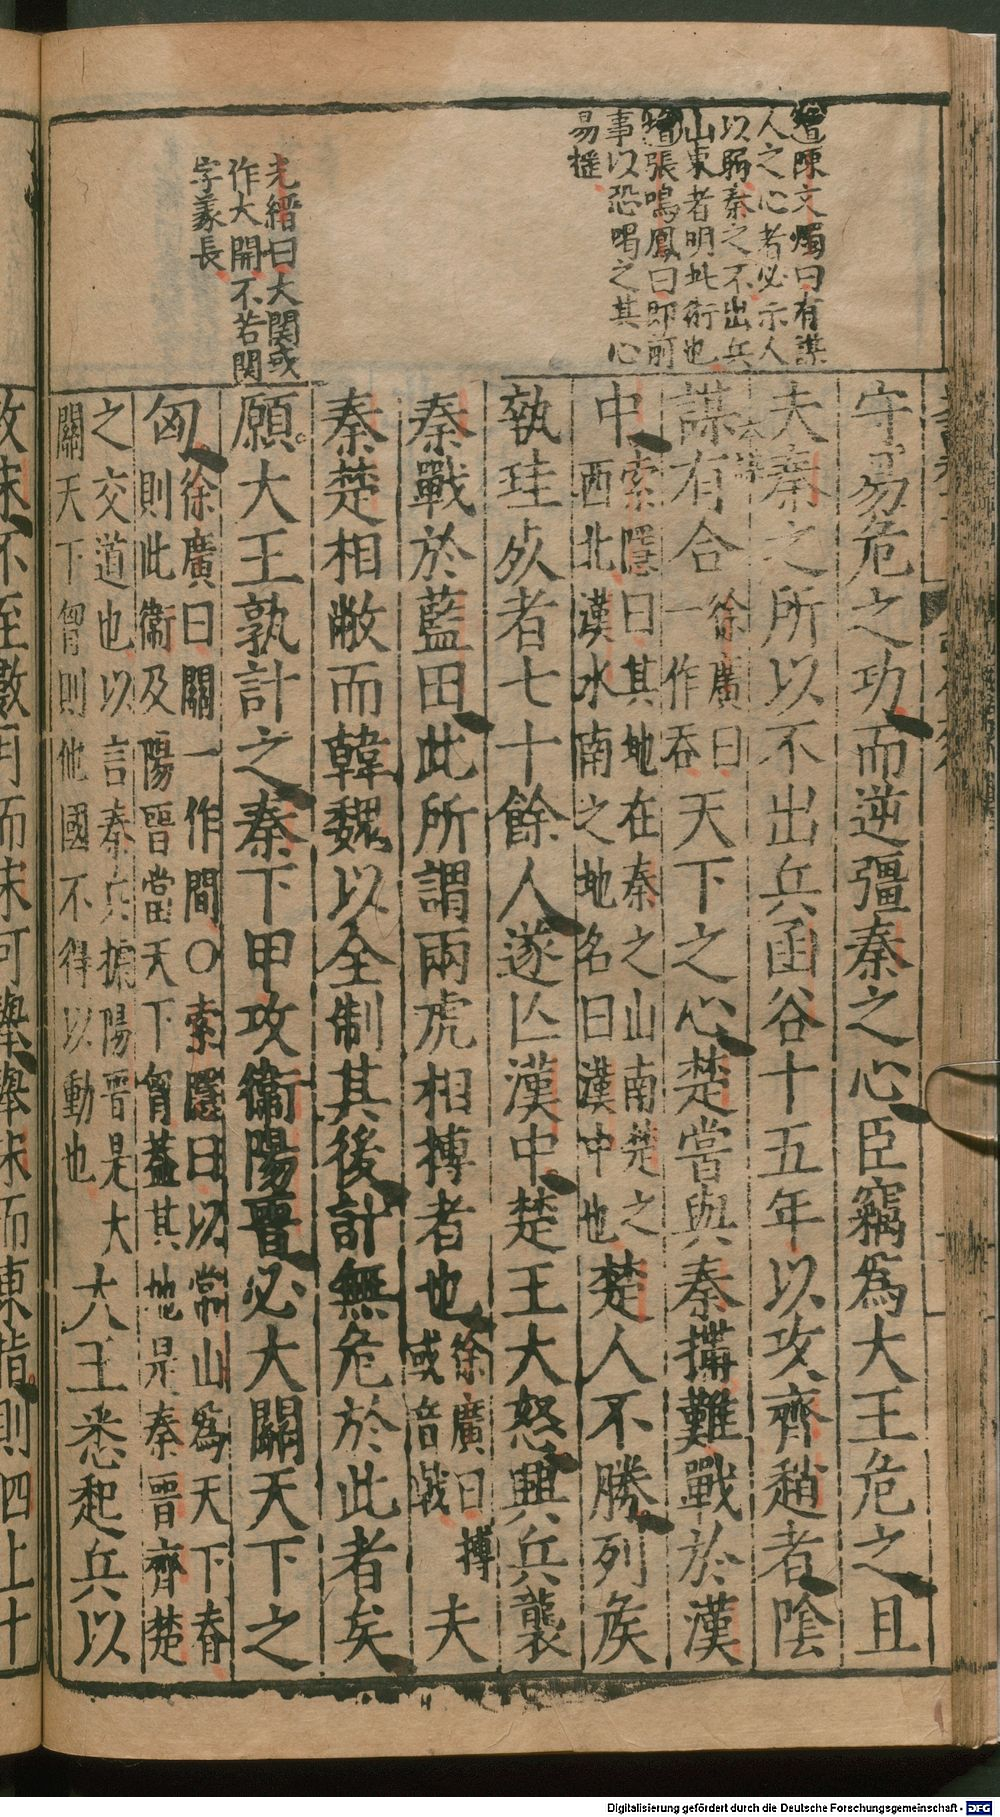 陳文燭曰有謀
人之心者必示人
以弱秦之不出兵
山東者明此術也
張鳴鳳曰即前
事以恐喝之其心
易搖
光縉曰大關或
作大開不若關
字義長
守易危之功而逆彊秦之心臣竊爲大王危之且
夫秦之所以不出兵函谷十五年以攻齊趙者陰
謀有合徐廣曰一作吞天下之心楚嘗與秦搆難戰於漢
中索隱曰其地在秦之山南楚之西北漢水南之地名曰漢中也楚人不勝列侯
執珪死者七十餘人遂亡漢中楚王大怒興兵襲
秦戰於藍田此所謂兩虎相搏者也徐廣曰搏或音戟夫
秦楚相敝而韓魏以全制其後計無危於此者矣
願大王孰計之秦下甲攻衞陽晉必大關天下之
匈徐廣曰關一作間○索隱曰以常山爲天下脊則此衞及陽晉當天下胷蓋其地是秦晉齊楚
之交道也以言秦兵據陽晉是大關天下胷則他國不得以動也大王悉起兵以
攻宋不至數月而宋可舉舉宋而東指則四上十
Digitalisierung gefördert durch die Deutsche Forschungsgemeinschaft - DFG